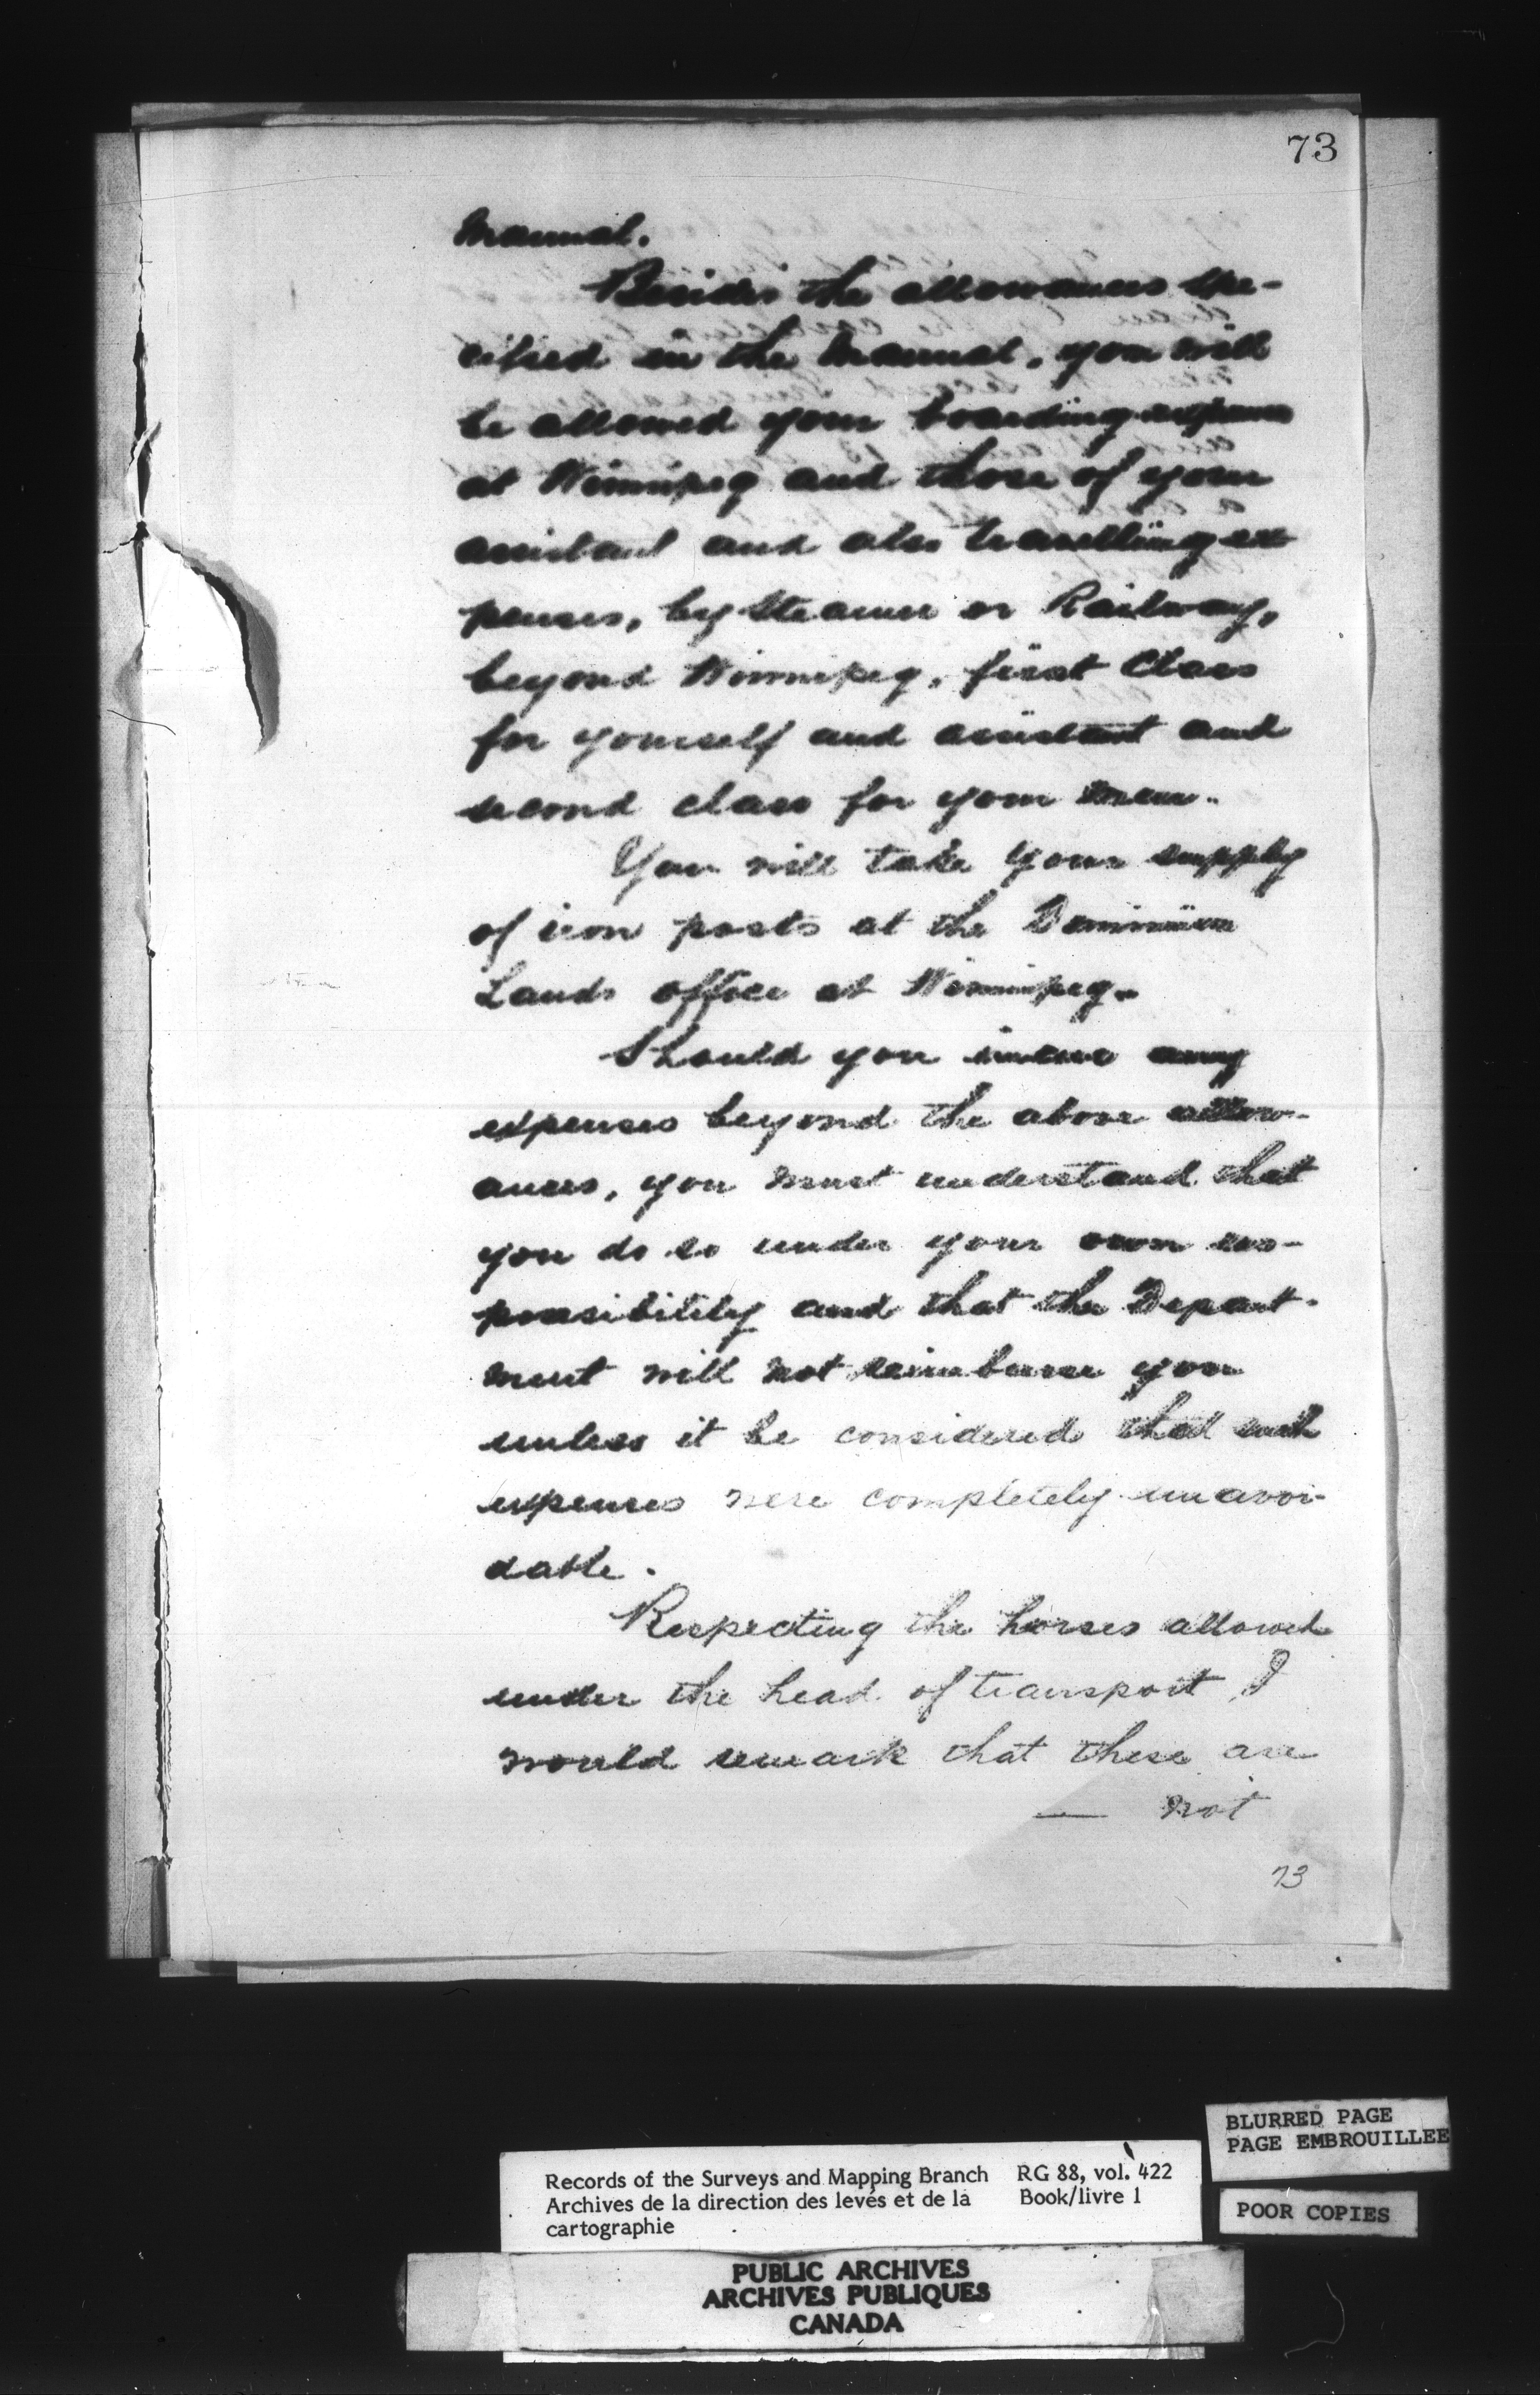 73
Manual.
Besides the allowances spe-
cified in the Manual, you will
be allowed your boarding expenses
at Winnipeg and those of your
assistant and also travelling ex-
penses, by steamer or Railway,
beyond Winnipeg, first Class
for yourself and assistant and
second class for your men.
You will take your supply
of iron posts at the Dominion
Lands office at Winnipeg.
Should you incur any
expenses beyond the above allow-
ances, you must understand that
you do so under your own res-
ponsibility and that the Depart-
ment will not reimburse you
unless it be considered that such
expenses were completely unavoi-
dable.
Respecting the horses allowed
under the head of transport, I
would remark that these are
— not
73
BLURRED PAGE
PAGE EMBROUILLEE
Records of the Surveys and Mapping Branch RG 88, vol. 422
Archives de la direction des levés et de la Book/livre 1
cartographie
POOR COPIES
PUBLIC ARCHIVES
ARCHIVES PUBLIQUES
CANADA